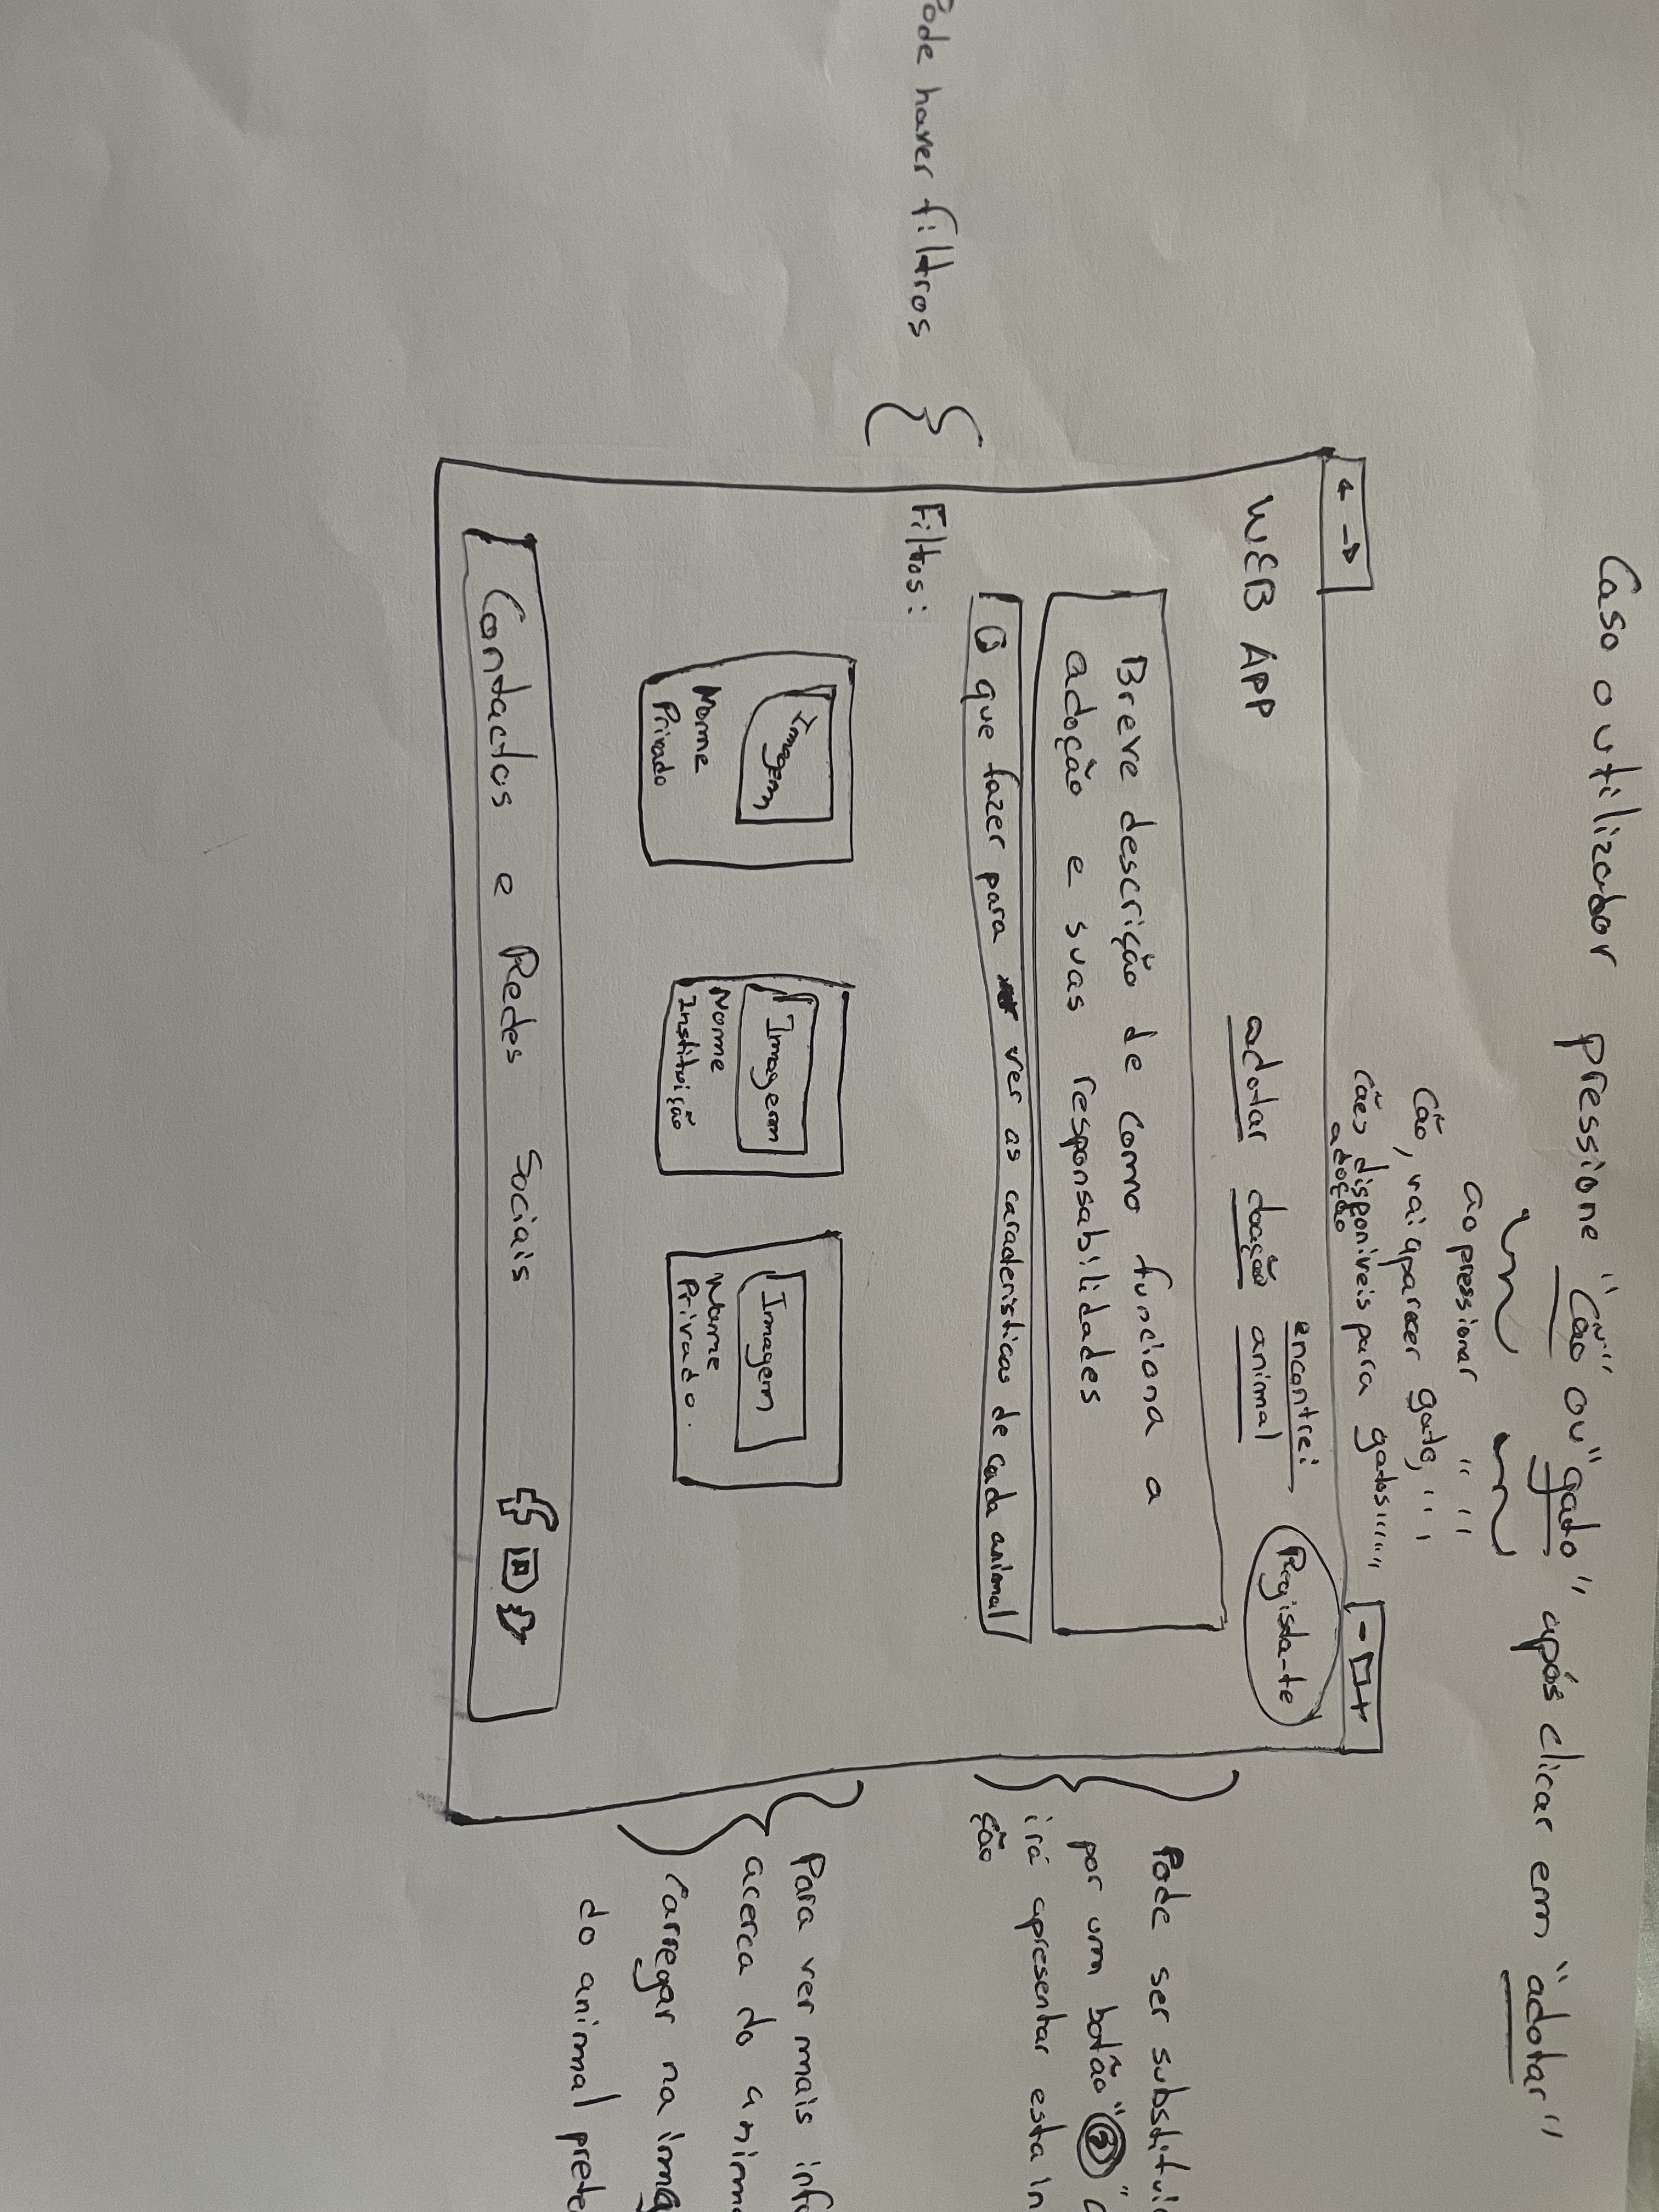 Caso o utilizador pressione "Cão" ou "gato" após clicar em "adotar"
ao pressionar " "
Cão, vai aparecer gato, " "
cães disponíveis para gatos " " "
adoção
WEB APP
adotar doação encontrei
animal
Regista-te
Breve descrição de como funciona a
adoção e suas responsabilidades
O que fazer para ver as caracteristicas de cada animal
Pode haver filtros
Filtros:
Imagem
Nome
Privado
Imagem
Nome
Instituição
Imagem
Nome
Privado.
Contactos e Redes Sociais
Pode ser substitui
por um botão "?"
irá apresentar esta in
ção
Para ver mais info
acerca do anima
Carregar na imag
do animal prete